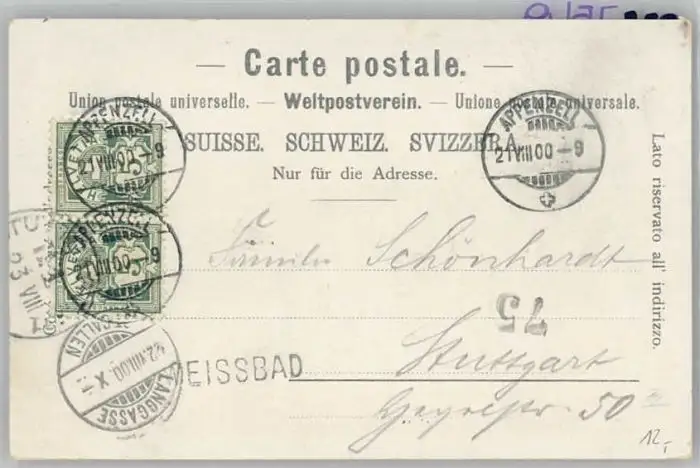 — Carte postale. —
Union postale universelle. — Weltpostverein. — Unione postale universale.
SUISSE. SCHWEIZ. SVIZZERA.
Nur für die Adresse.
Lato riservato all' indirizzo.
APPENZELL
21 VIII 00 – 9
APPENZELL
21 VIII 00 – 9
APPENZELL
21 VIII 00 – 9
Schönhardt
75
Stuttgart
50
EISSBAD
ST. GALLEN
22. VIII. 00. X
LANGGASSE
12,-